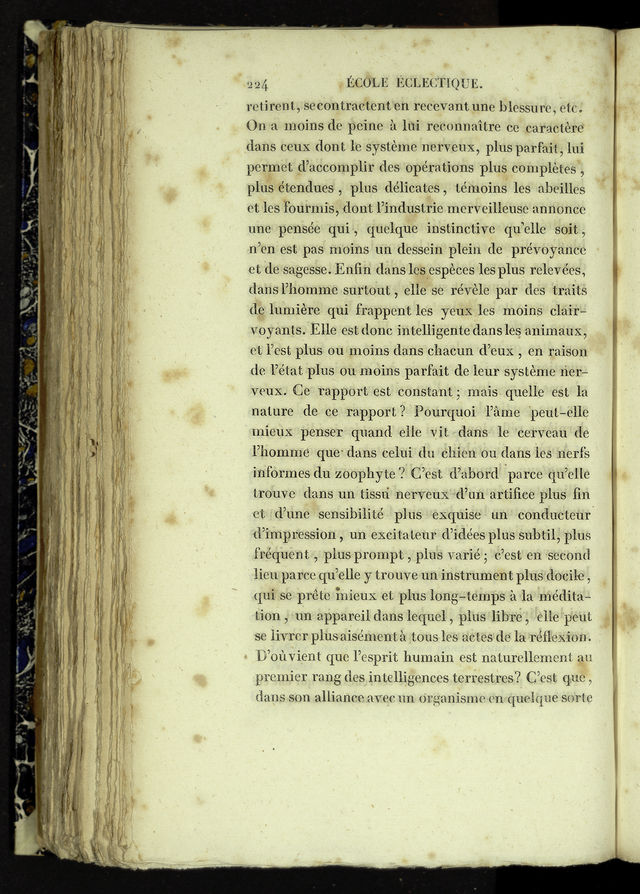 224 ÉCOLE ECLECTIQUE.
retirent, se contractent en recevant une blessure, etc.
On a moins de peine à lui reconnaître ce caractère
dans ceux dont le système nerveux, plus parfait, lui
permet d'accomplir des opérations plus complètes,
plus étendues, plus délicates, témoins les abeilles
et les fourmis, dont l'industrie merveilleuse annonce
une pensée qui, quelque instinctive qu'elle soit,
n'en est pas moins un dessein plein de prévoyance
et de sagesse. Enfin dans les espèces les plus relevées,
dans l'homme surtout, elle se révèle par des traits
de lumière qui frappent les yeux les moins clair-
voyants. Elle est donc intelligente dans les animaux,
et l'est plus ou moins dans chacun d'eux, en raison
de l'état plus ou moins parfait de leur système ner-
veux. Ce rapport est constant; mais quelle est la
nature de ce rapport? Pourquoi l'âme peut-elle
mieux penser quand elle vit dans le cerveau de
l'homme que dans celui du chien ou dans les nerfs
informes du zoophyte? C'est d'abord parce qu'elle
trouve dans un tissu nerveux d'un artifice plus fin
et d'une sensibilité plus exquise un conducteur
d'impression, un excitateur d'idées plus subtil, plus
fréquent, plus prompt, plus varié; c'est en second
lieu parce qu'elle y trouve un instrument plus docile,
qui se prête mieux et plus long-temps à la médita-
tion, un appareil dans lequel, plus libre, elle peut
se livrer plus aisément à tous les actes de la réflexion.
D'où vient que l'esprit humain est naturellement au
premier rang des intelligences terrestres? C'est que,
dans son alliance avec un organisme en quelque sorte